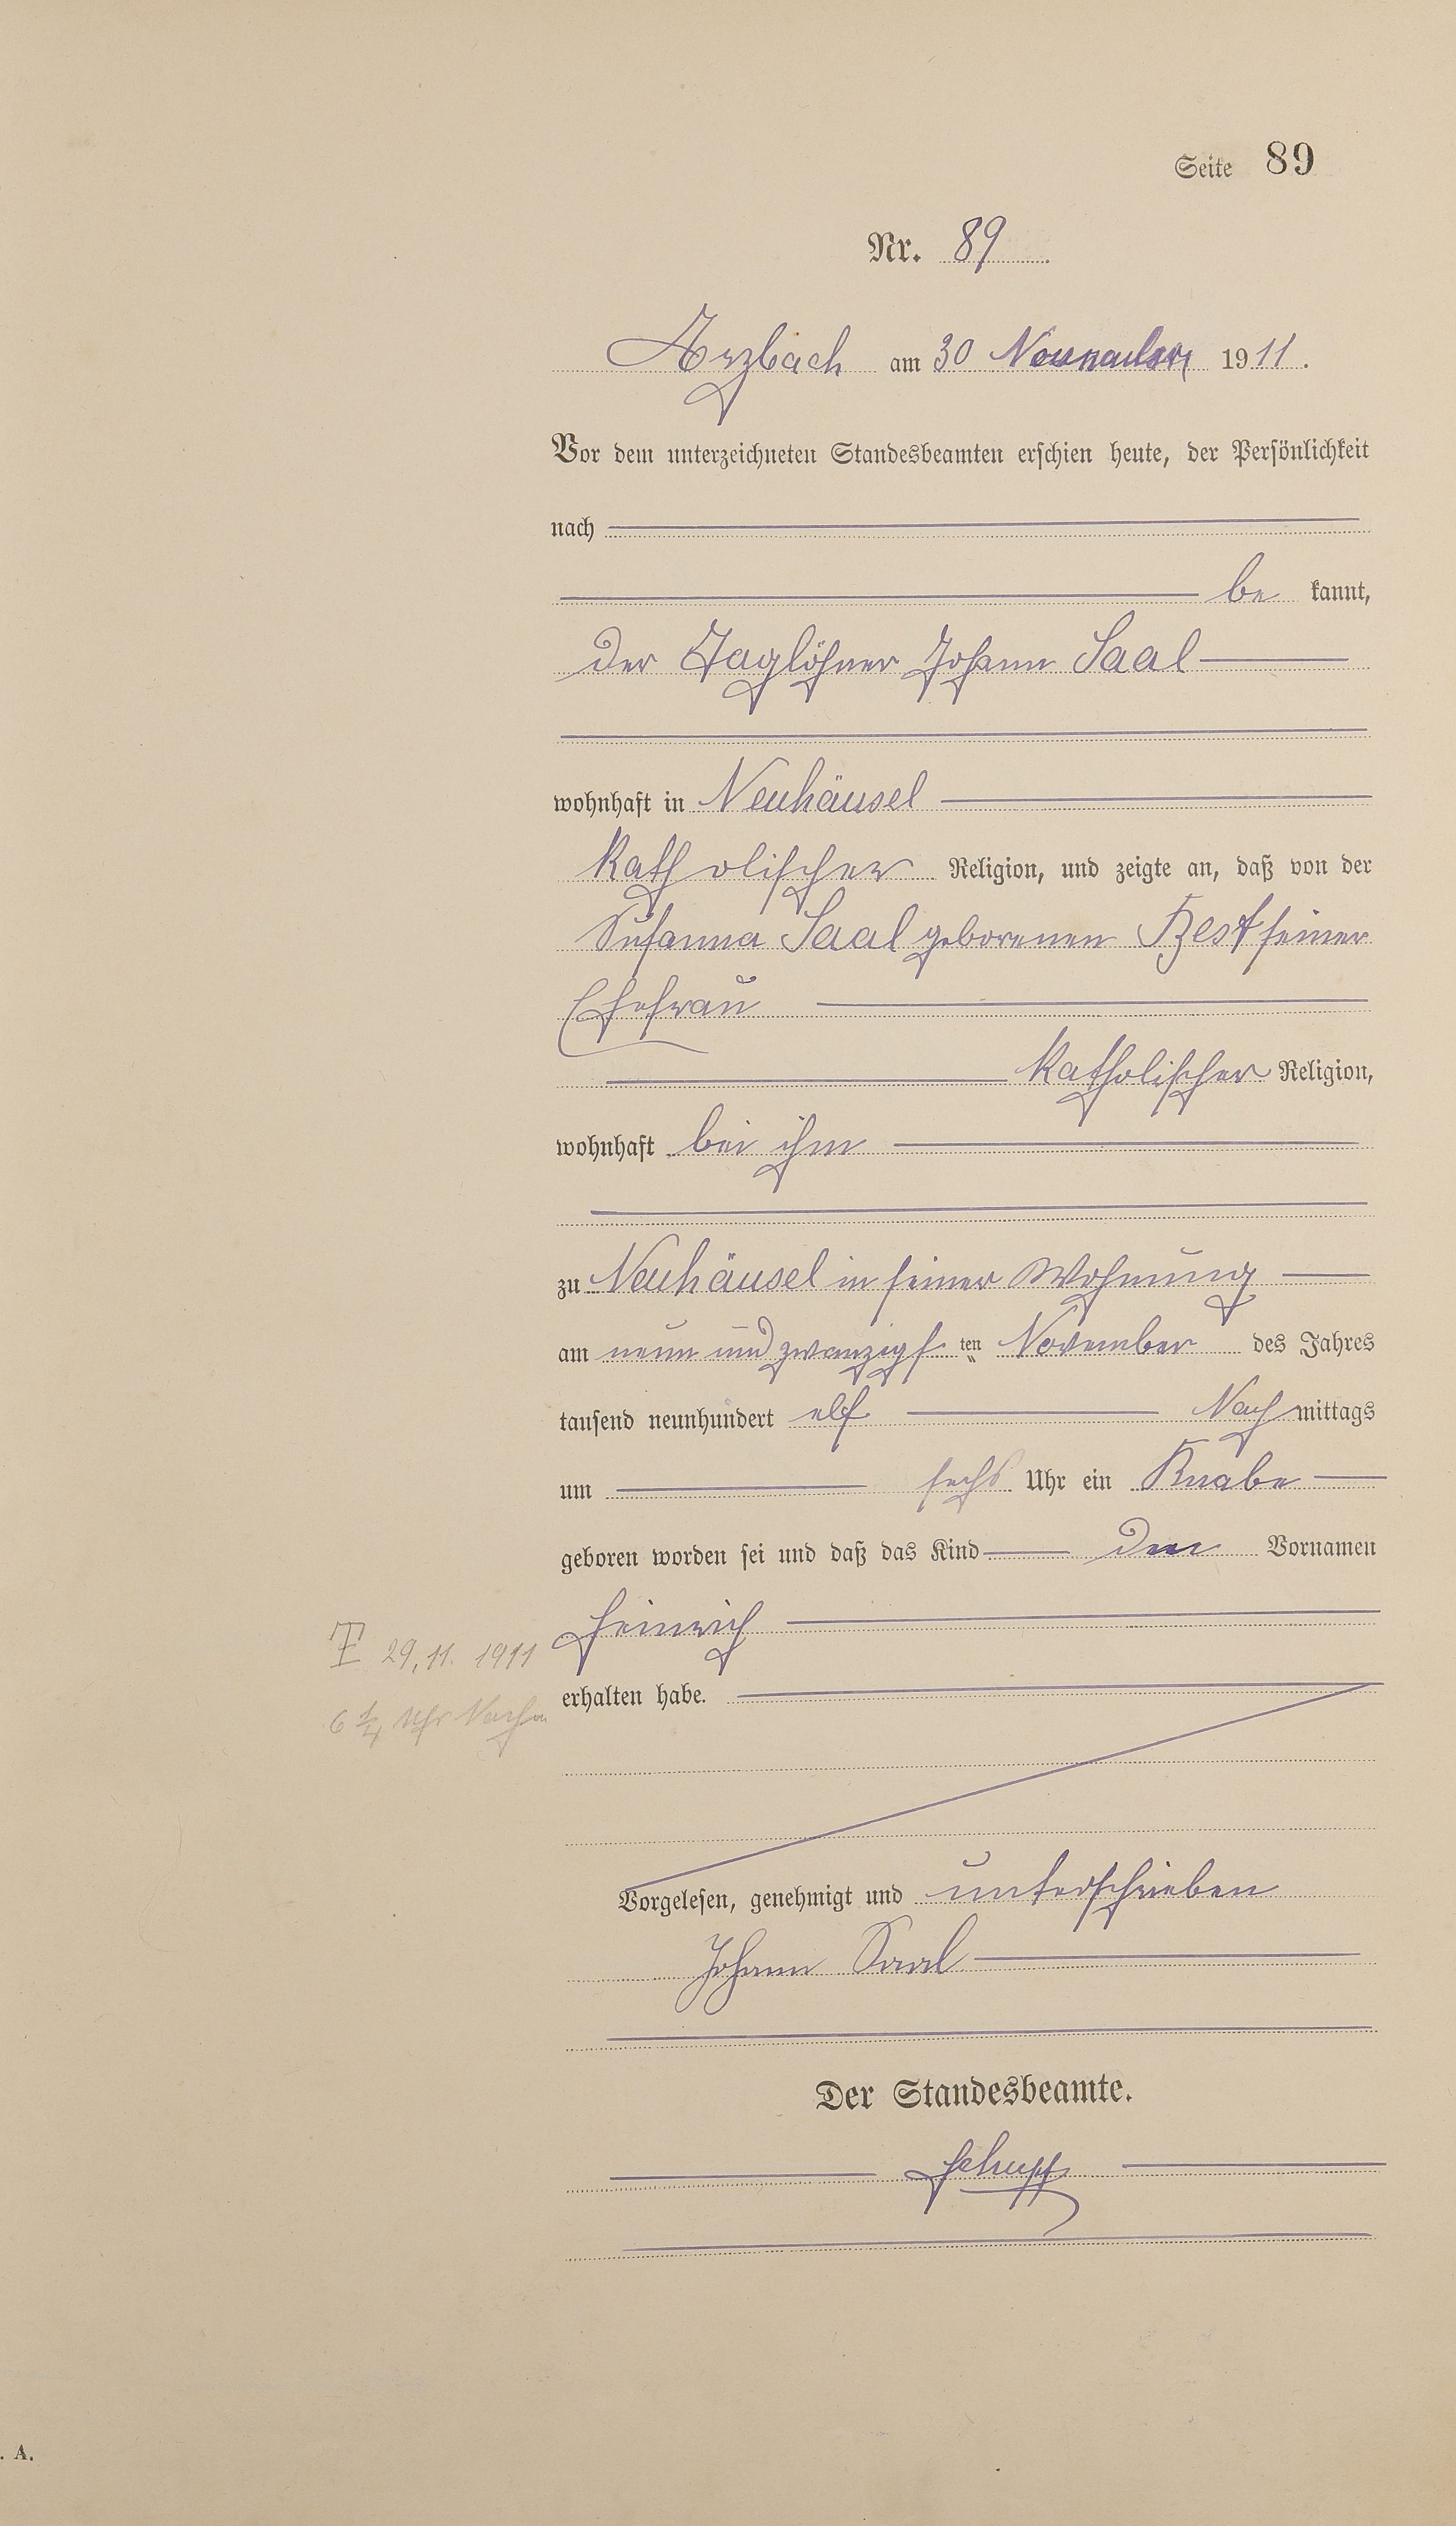 Seite 89
Nr. 89
Arzbach am 30 November 1911.
Vor dem unterzeichneten Standesbeamten erschien heute, der Persönlichkeit
nach
be kannt,
der Taglöhner Johann Saal
wohnhaft in Neuhäusel
katholischer Religion, und zeigte an, daß von der
Susanna Saal geborenen Best seiner
Ehefrau
katholischer Religion,
wohnhaft bei ihm
zu Neuhäusel in seiner Wohnung
am neun und zwanzigs ten November des Jahres
tausend neunhundert elf Nach mittags
um sechs Uhr ein Knabe
geboren worden sei und daß das Kind den Vornamen
Heinrich
T 29.11. 1911
erhalten habe.
6 1/4 Uhr Nachm
Vorgelesen, genehmigt und unterschrieben
Johann Saal
Der Standesbeamte.
. A.